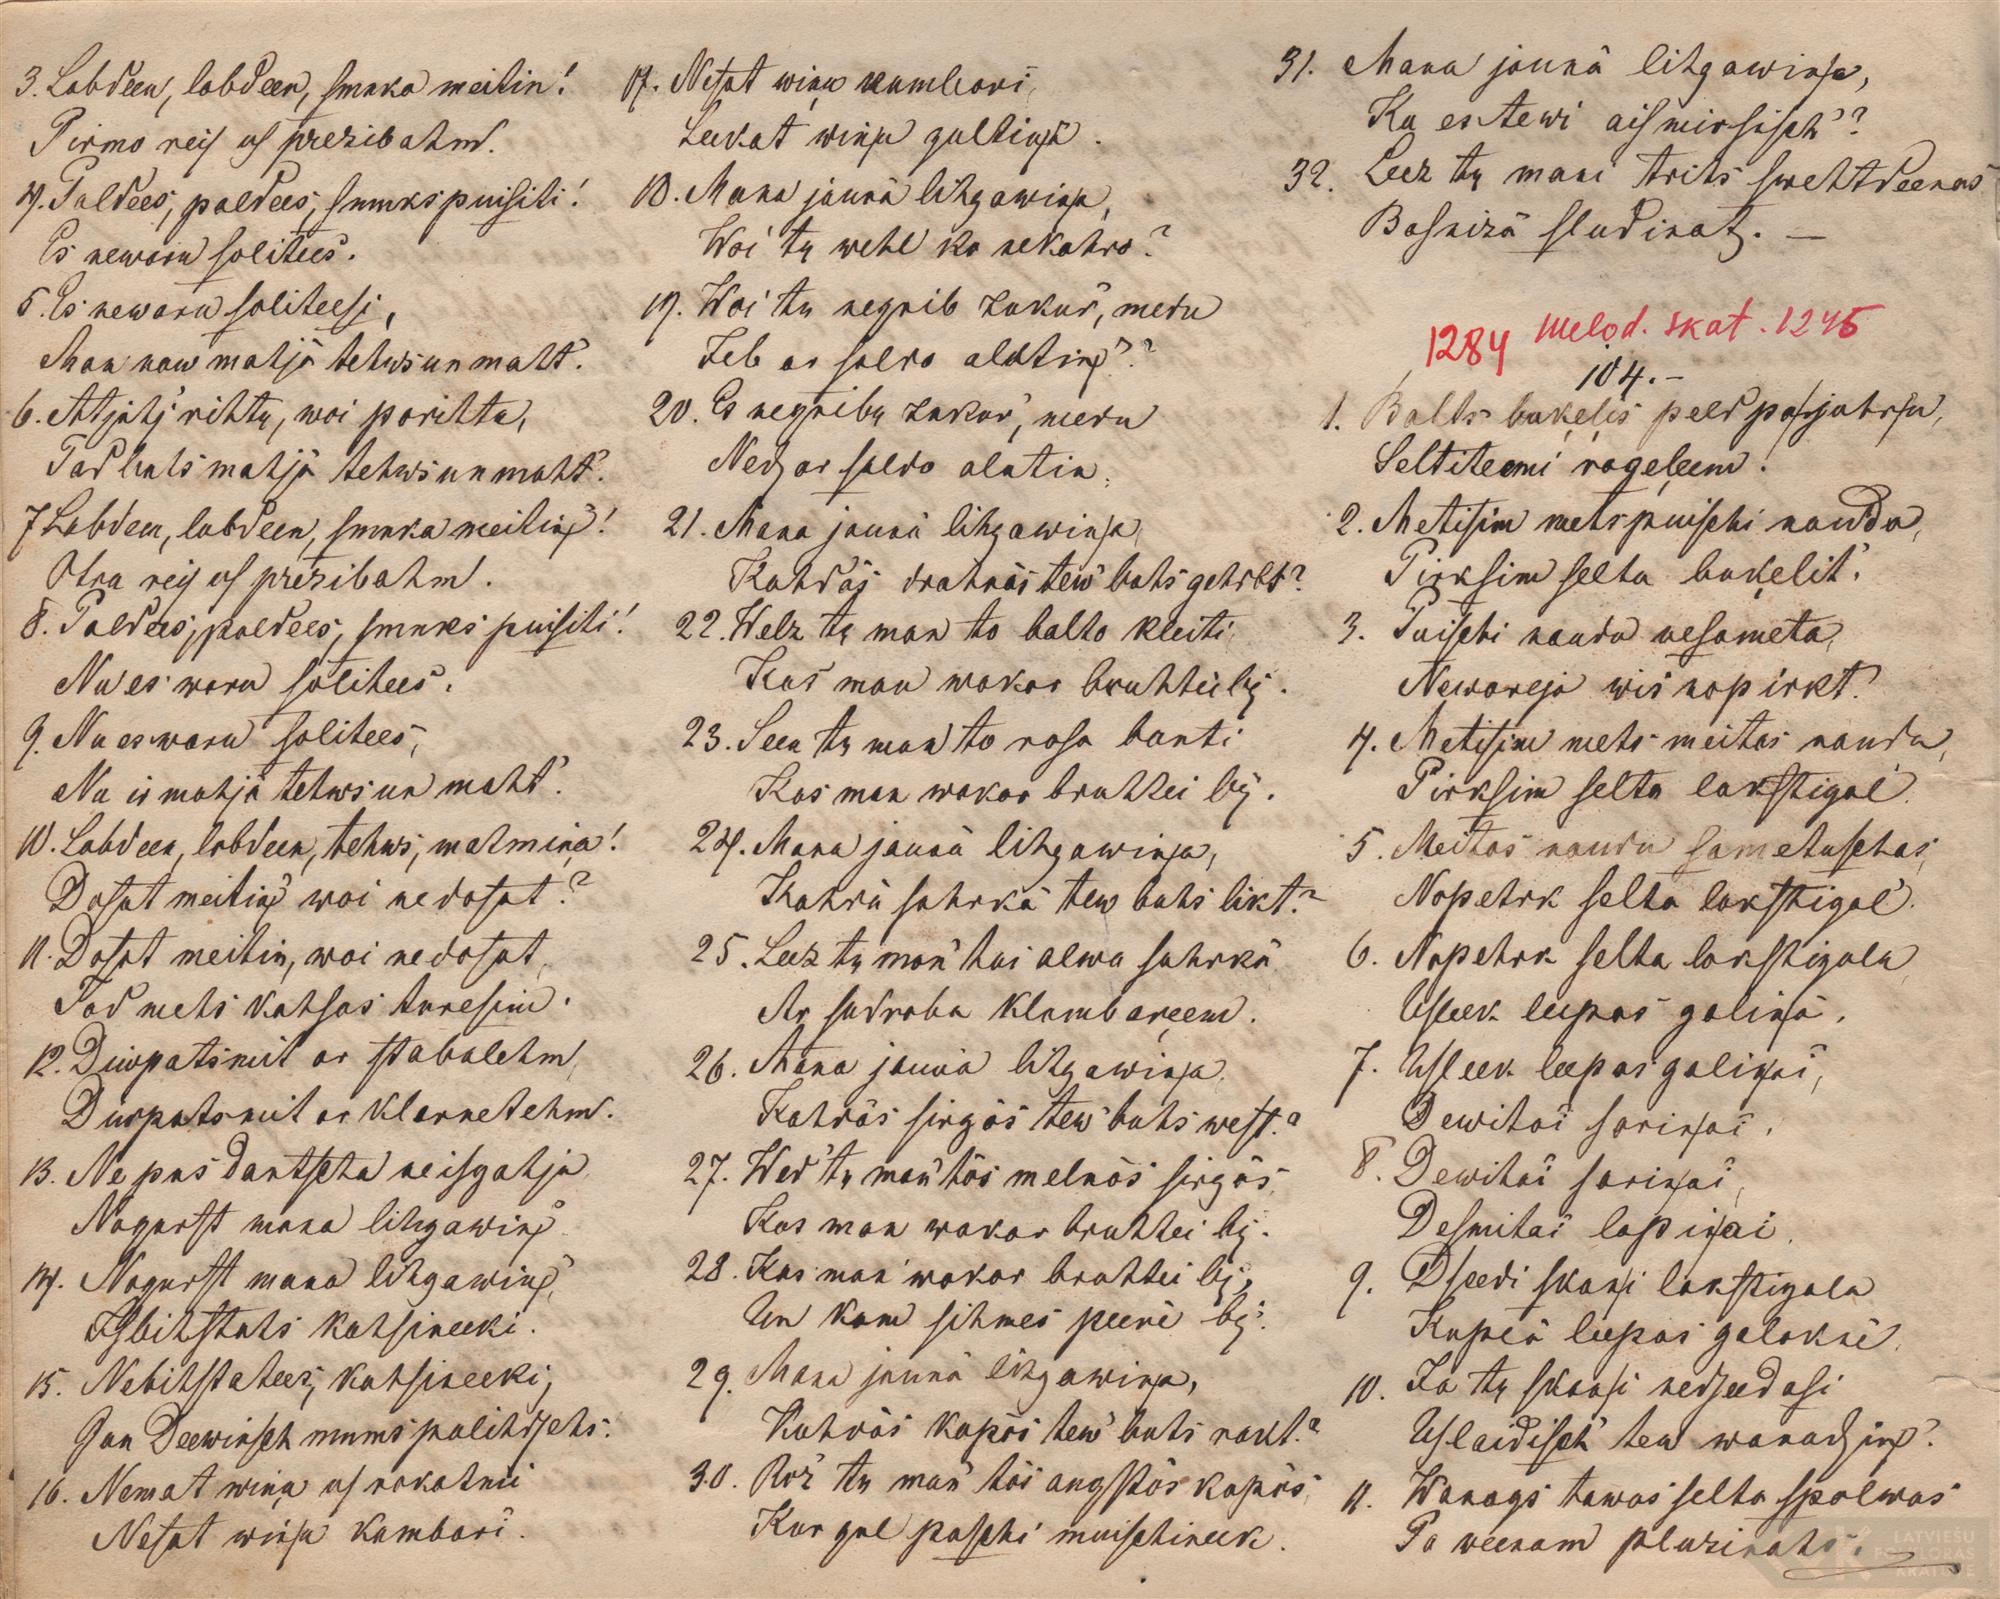 3. Labdeen, labdeen, smuka meitin'!
Pirmo reis us prezibahm.
4. Paldees, paldees, smuks puisiti!
Es newaru solitees.
5. Es newaru soliteesi,
Man naw mahjä tehws un maht'.
6. Atjahj' rihtu, woi parihtu,
Tad buhs mahjä tehws un maht'.
7. Labdeen, labdeen, smuka meitiņ'!
Otra reis us prezibahm.
8. Paldees, paldees, smuks puisiti!
Nu es waru solitees.
9. Nu es waru solitees,
Nu ir mahjä tehws un maht'.
10. Labdeen, labdeen, tehws, mahmiņa!
Dosat meitiņ' woi nedosat?
11. Dosat meitiņ, woi nedosat,
Tad mehs kahsas turesim.
12. Diwpatsmit ar stabulehm,
Diwpatsmit ar klarnetehm.
13. Ne pus dantscha neisgahja
Nogurst mana lihgawiņ'
14. Nogurst mana lihgawiņ',
Isbihstahs kahsineeki.
15. Nebihstatees, kahsineeki,
Gan Deewinsch mums palihdsehs.
16. Nemat wiņu us rokahm
Nesat wiņu kambari.
17. Nesat wiņu kambari,
Leekat wiņu gultiņä.
18. Mana jaunä lihgawiņa,
Woi tu wehl ko nekahro?
19. Woi tu negrib zukur', medu
Jeb ar saldo alutiņ'?
20. Es negribu zukur', medu
Nedz ar saldo alutin.
21. Mana jaunä lihgawiņa,
Kahdäs drahnäs tew buhs gehrbt?
22. Welz tu man to balto kleiti,
Kas man wakar bruhtei bij.
23. Seen tu man to rosa banti
Kas man wakar bruhtei bij.
24. Mana jaunä lihgawiņa,
Kahdä sahrkä tew buhs likt?
25. Leez tu man' tai alwa sahrkä
Ar sudraba klambaŗeem.
26. Mana jaunä lihgawiņa,
Kahdäs sirgäs tew buhs west?
27. Wed tu man' tös melnös sirgös,
Kas man wakar bruhtei bij.
28. Kas man wakar bruhtei bij,
Un kam sihmes peerê bij.
29. Mana jaunä lihgawiņa,
Kahdäs kapös tew buhs rakt?
30. Roz tu man' tös augstös kapös,
Kur gul paschi muischineek.
31. Mana jaunä lihgawiņa,
Ka es tewi aismirsisch'?
32. Leez tu mani trihs swehtdeenas
Basnizä sludinat. —
1284 Melod. skat. 1245
104. —
1. Balts bukelis peld pa juhŗu,
Seltiteemi rageleem.
2. Metisim mehs puischi naudu,
Pirksim selta bukelit'.
3. Puischi naudu nesameta,
Newareja wis nopirkt.
4. Metisim mehs meitas naudu,
Pirksim selta lakstigal'.
5. Meitas naudu sametuschas,
Nopehrk selta lakstigal'.
6. Nopehrk selta lakstigalu
Usleek leepas galiņä.
7. Usleek leepas galiņai,
Dewitai sariņai.
8. Dewitai sariņai,
Desmitai lapiņai.
9. Dseedi skaņi lakstigala
Kupla leepas galoknê.
10. Ja tu skaņi nedseedasi
Uslaidisch' tew wanadziņ'.
11. Wanags tawas selta spalwas
Pa weenam pluzinahs.